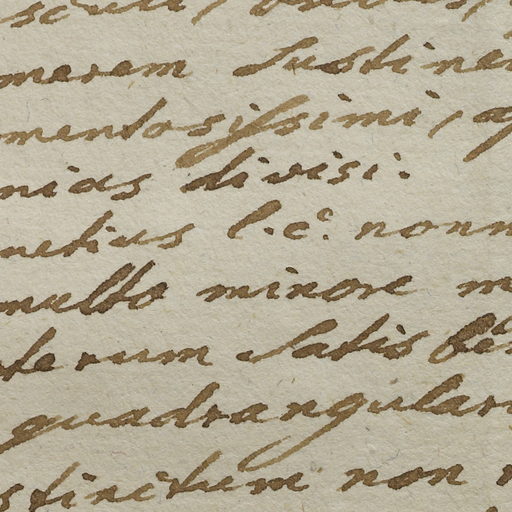 merem sustinen
mentosissimi, q
nias divisi.
netius l. cº. nonn
multo minore m
terum satis be
quadrangulari
stinctum non